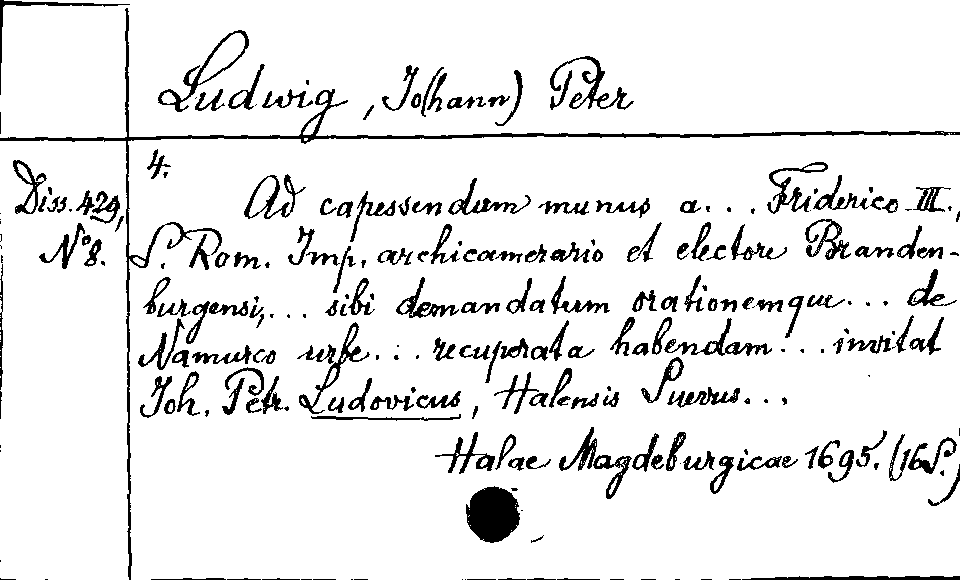 Ludwig, Jo(hann) Peter
4.
Diss. 429,
N° 8.
Ad capessendum munus a... Friderico III.,
S. Rom. Imp. archicamerario et electore Branden-
burgensi,... sibi demandatum orationemque... de
Namurco urbe... recuperata habendam... invitat
Joh. Petr. Ludovicus, Halensis Suevus...
Halae Magdeburgicae 1695. (16 S.)